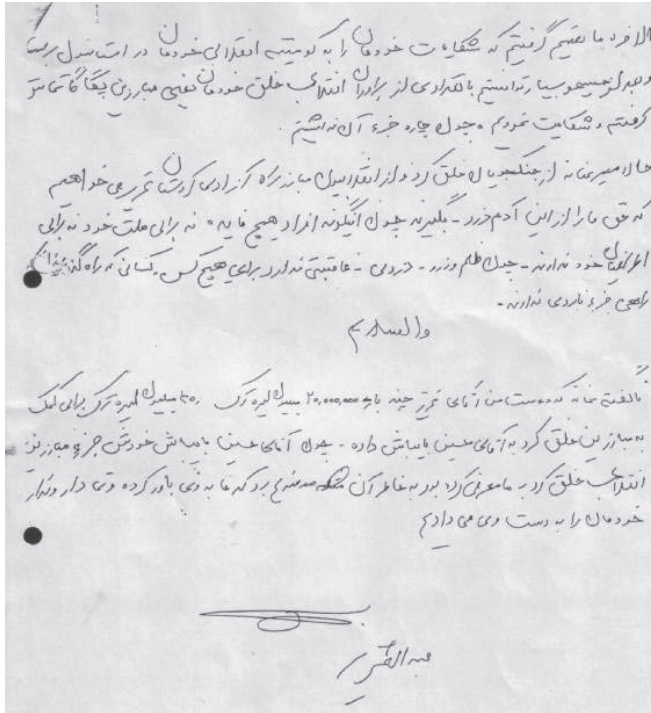 بالاخره ما تصمیم گرفتیم که شکایات خودمان را به کومیته انقلابی خودمان در استانبول برسانیم
و بعد از جستجو بسیار توانستیم با تعدادی از برادران انقلاب خلق خودمان یعنی مبارزین تماس
گرفتیم و شکایت نمودیم و چون چاره جزء آن نداشتیم.
حال از جنگجویان خلق کرد و از انقلابیون مبارز راه آزادی کردستان می خواهیم
که حق ما را از این آدم دزد - بگیرند چون اینگونه افراد هیچ فایده نه برای ملت خود نه برای
اطرافیان خود ندارند - چون ظلم و زور - دزدی - عاقبتی ندارد برای هیچ کس. کسانی که راه
راهی جزء نابودی ندارند -
والسلام
ناگفته نماند که دوست من آقای چند بار 20,000,000 میلیون لیره ترک میلیون لیره ترک برای کمک
به مبارزین خلق کرد به آقای حسین داده - چون آقای حسین خودش جزء مبارزین
انقلاب خلق کرد به ما معرفی کرده بود به خاطر آن بود که ما به وی باور کرده و دار و ندار
خودمان را به دست وی می دادیم